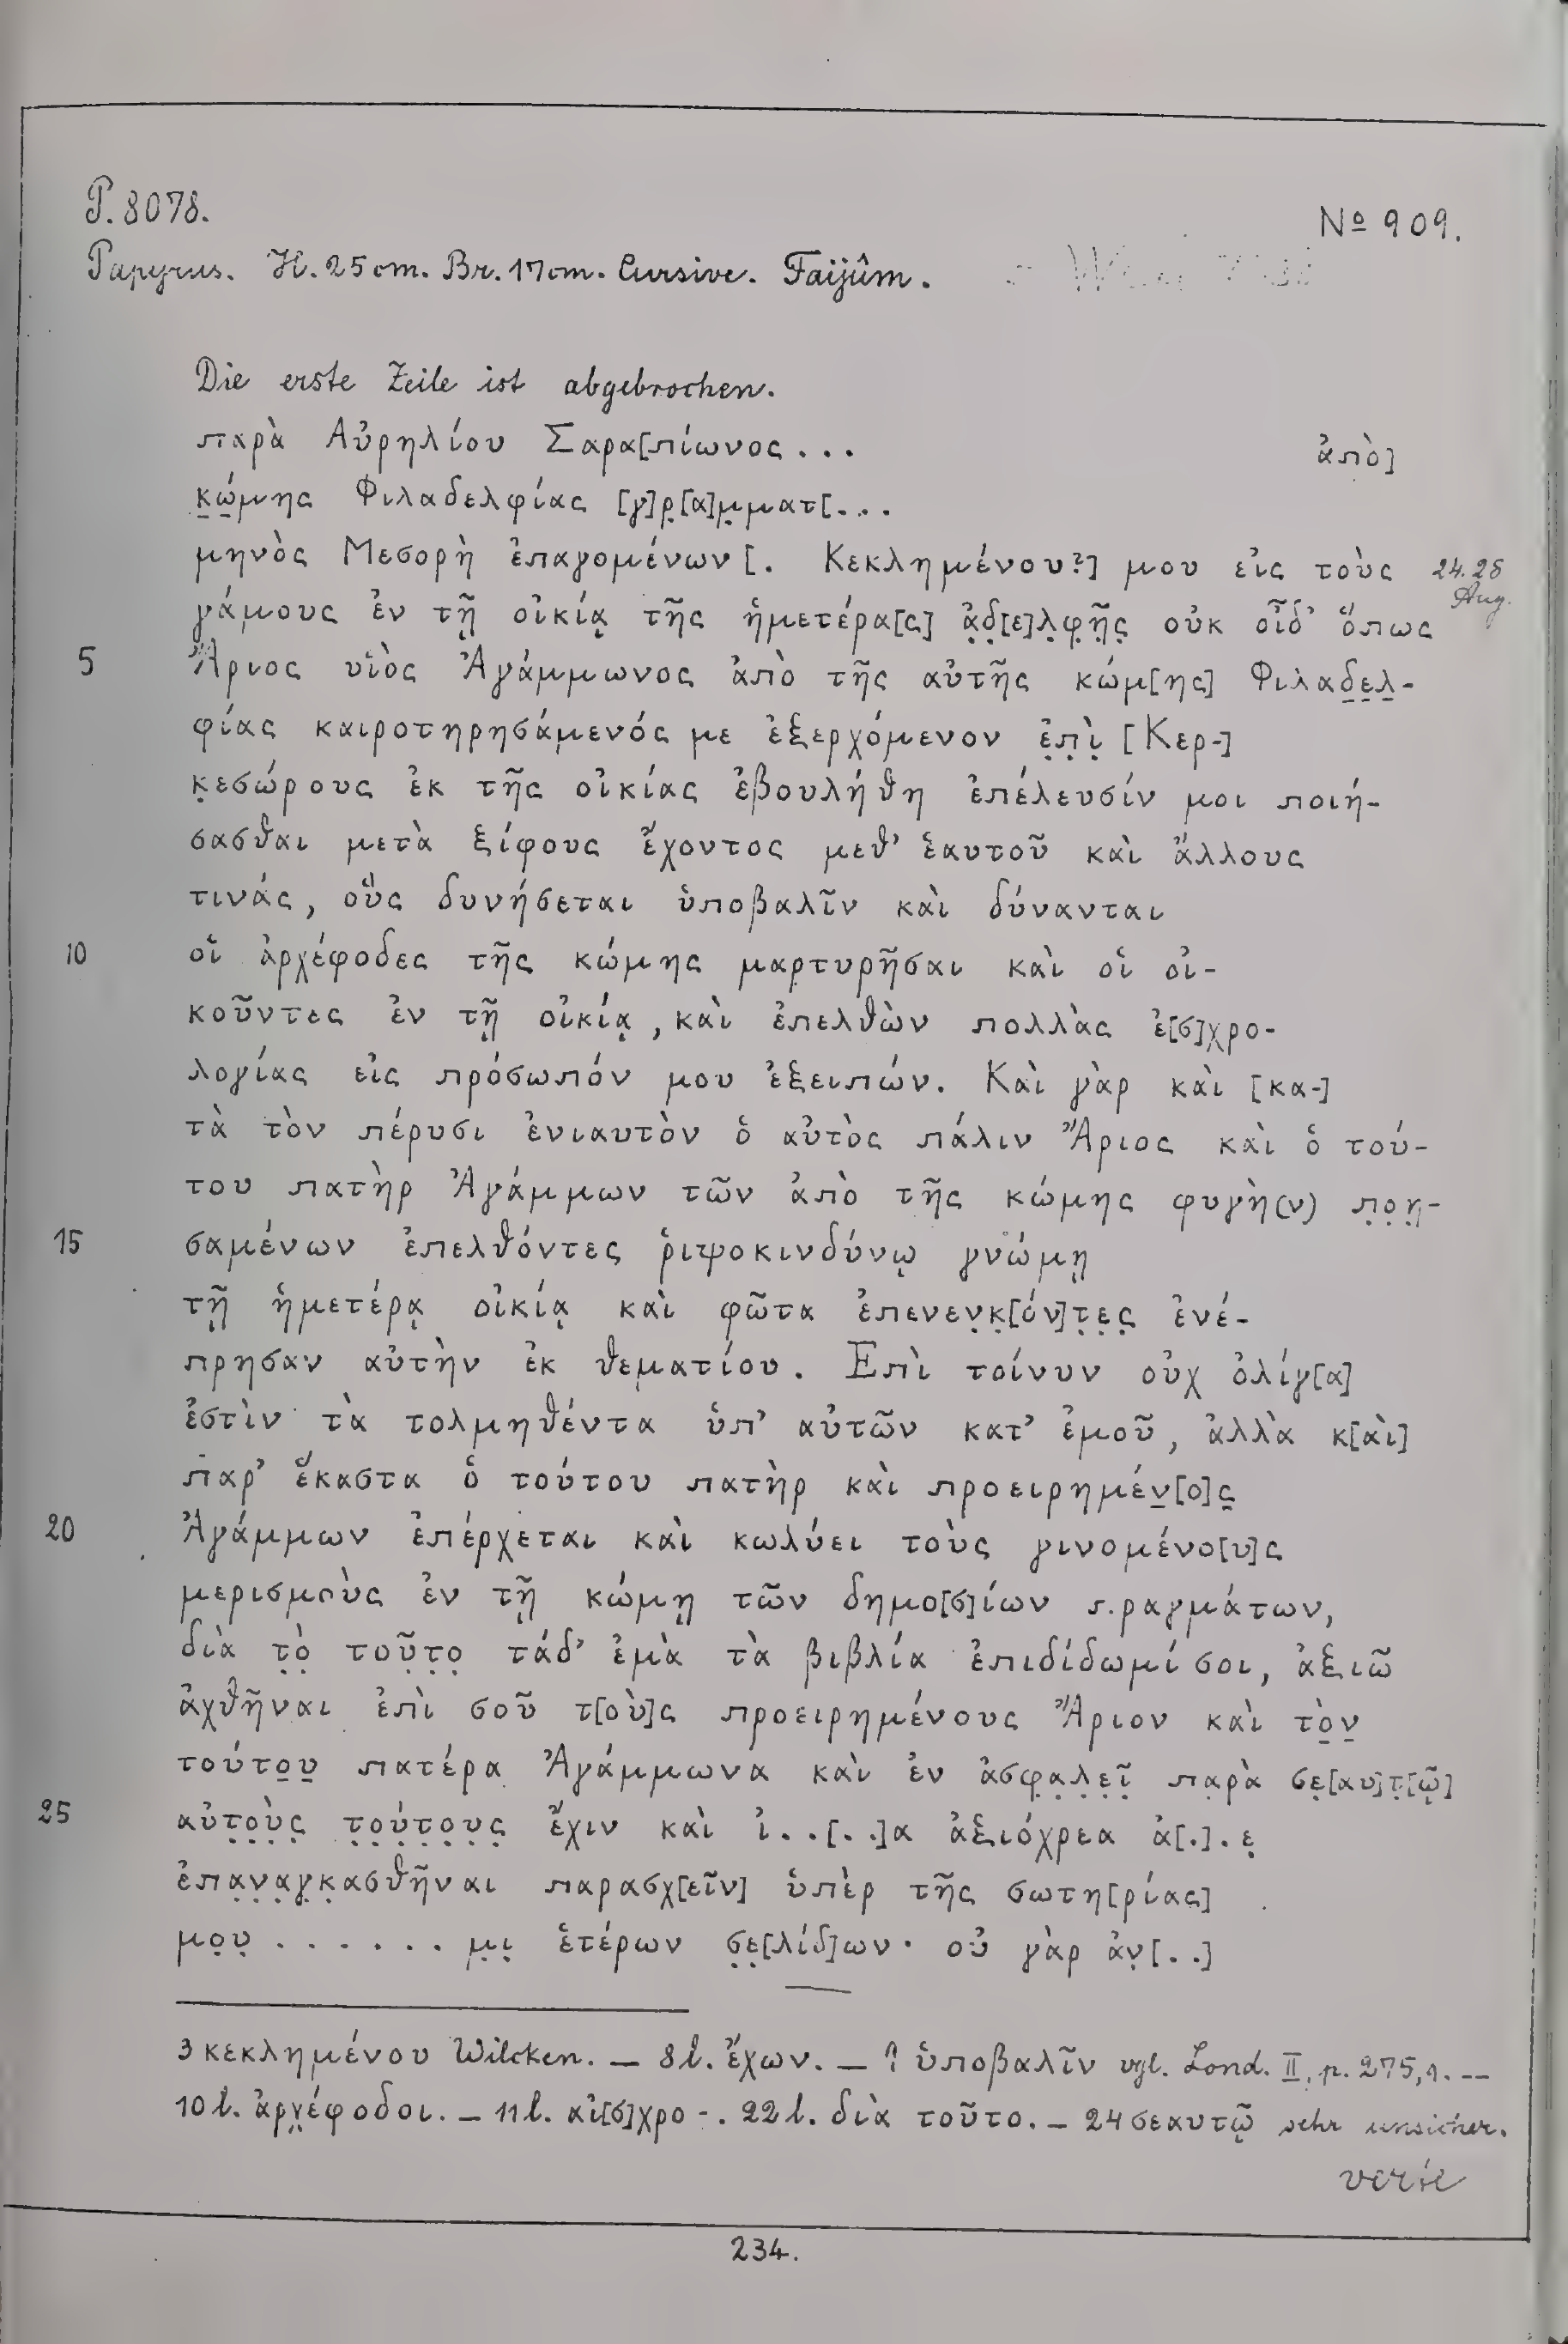 P. 8078.
No 909.
Papyrus. H. 25 cm. Br. 17 cm. Cursive. Faijûm.
Die erste Zeile ist abgebrochen.
παρὰ Αὐρηλίου Σαρα[πίωνος... ἀπὸ]
κ̲ώ̲μης Φιλαδελφίας [γ]ρ̣[α]μ̣ματ[...
μηνὸς Μεσορὴ ἐπαγομένων [. Κεκλημένου?] μου εἰς τοὺς 24.28 Aug.
γάμους ἐν τῇ οἰκίᾳ τῆς ἡμετέρα[ς] ἀ̣δ̣[ε]λ̣φ̣ῆ̣ς̣ οὐκ οἶδ' ὅπως
5 Ἄριος υἱὸς Ἀγάμμωνος ἀπὸ τῆς αὐτῆς κώμ[ης] Φιλαδ̲ε̲λ̲-
φίας καιροτηρησάμενός με ἐξερχόμενον ἐ̣π̣ὶ̣ [Κερ-]
κ̣εσώρους ἐκ τῆς οἰκίας ἐβουλήθη ἐπέλευσίν μοι ποιή-
σασθαι μετὰ ξίφους ἔχοντος μεθ' ἑαυτοῦ καὶ ἄλλους
τινάς, οὓς δυνήσεται ὑποβαλῖν καὶ δύνανται
10 οἵ ἀρχέφοδες τῆς κώμης μαρτυρῆσαι καὶ οἱ οἰ-
κοῦντες ἐν τῇ οἰκίᾳ, καὶ ἐπελθὼν πολλὰς ἐ[σ]χρο-
λογίας εἰς πρόσωπόν μου ἐξειπών. Καὶ γὰρ καὶ [κα-]
τὰ τὸν πέρυσι ἐνιαυτὸν ὁ αὐτὸς πάλιν Ἄριος καὶ ὁ τού-
του πατὴρ Ἀγάμμων τῶν ἀπὸ τῆς κώμης φυγὴ(ν) π̣ο̣η̣-
15 σαμένων ἐπελθόντες ῥιψοκινδύνῳ γνώμῃ
τῇ ἡμετέρᾳ οἰκίᾳ καὶ φῶτα ἐπενεν̣κ̣[όν]τ̣ε̣ς̣ ἐνέ-
πρησαν αὐτὴν ἐκ θεματίου. Ἐπὶ τοίνυν οὐχ ὀλίγ[α]
ἐστὶν τὰ τολμηθέντα ὑπ' αὐτῶν κατ' ἐμοῦ, ἀλλὰ κ[αὶ]
παρ' ἕκαστα ὁ τούτου πατὴρ καὶ προειρημέν̲[ο]ς̲
20 Ἀγάμμων ἐπέρχεται καὶ κωλύει τοὺς γινομένο[υ]ς
μερισμοὺς ἐν τῇ κώμῃ τῶν δημο[σ]ίων πραγμάτων,
διὰ τ̣ὸ̣ τοῦτ̣ο̣ τάδ' ἐμὰ τὰ βιβλία ἐπιδίδωμί σοι, ἀξιῶ
ἀχθῆναι ἐπὶ σοῦ τ[οὺ]ς προειρημένους Ἄριον καὶ τὸ̲ν̲
τούτο̲υ̲ πατέρα Ἀγάμμωνα καὶ ἐν ἀσφ̣α̣λ̣ε̣ῖ̣ παρὰ σε̣[αυ]τ̣[ῷ̣]
25 αὐτ̣ο̣ὺ̣ς̣ τ̣ο̣ύ̣τ̣ο̣υ̣ς̣ ἔχιν καὶ ἱ..[..]α ἀξιόχρεα ἀ[.].ε̣
ἐπα̣ν̣α̣γ̣κ̣ασθῆναι παρασχ[εῖν] ὑπὲρ τῆς σωτη[ρίας]
μο̣υ̣ ....... μ̣ι̣ ἑτέρων σ̣ε̣[λίδ]ων· οὐ γὰρ ἀν̣[..]
3 κεκλημένου Wilcken. — 8 l. ἔχων. — 9 ὑποβαλῖν vgl. Lond. II, p. 275, 9. --
10 l. ἀρχέφοδοι. — 11 l. αἰ[σ]χρο-. 22 l. διὰ τοῦτο. — 24 σεαυτῷ sehr unsicher.
234.